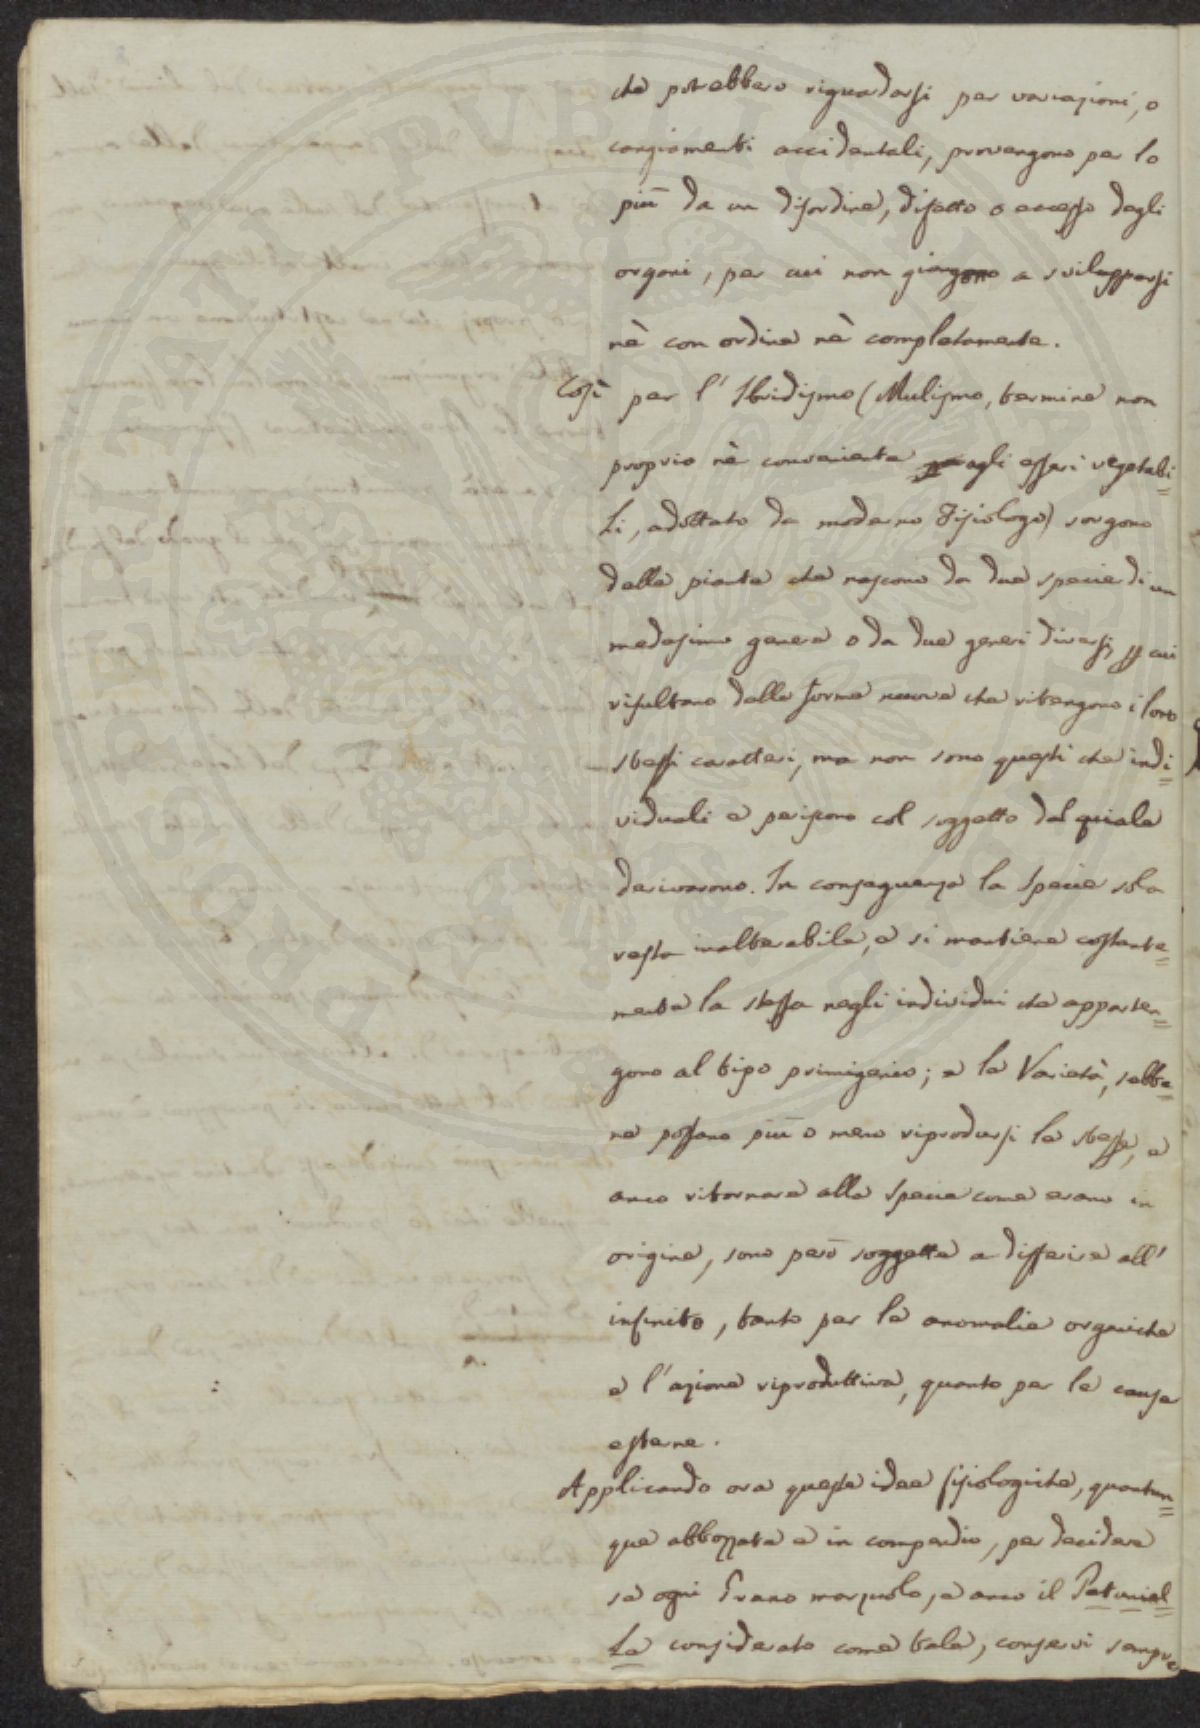 che potrebbero riguardarsi per variazioni, o
cangiamenti accidentali, provengono per lo
più da un disordine, difetto o eccesso degli
organi, per cui non giungono a svilupparsi
nè con ordine nè completamente.
Così per l'Ibridismo (Mulismo, termine non
proprio nè conveniente agli esseri vegetabi=
li, adottato da moderno Fisiologo) sorgono
delle piante che nascono da due specie di un
medesimo genere o da due generi diversi, per cui
risultano delle forme nuove che ritengono i loro
stessi caratteri, ma non sono questi che indi=
viduali e periscono col soggetto dal quale
derivarono. In conseguenza la Specie sola
resta inalterabile, e si mantiene costante=
mente la stessa negli individui che apparten=
gono al tipo primigenio; e le Varietà, sebbe=
ne possano più o meno riprodursi le stesse, e
anco ritornare alla Specie come erano in
origine, sono però soggette a differire all'
infinito, tanto per le anomalie organiche
e l'azione riproduttiva, quanto per le cause
esterne.
Applicando ora queste idee fisiologiche, quantun=
que abbozzate e in compendio, per decidere
se ogni Grano marzuolo, e anco il Petaniel=
la considerato come tale, conservi sempre